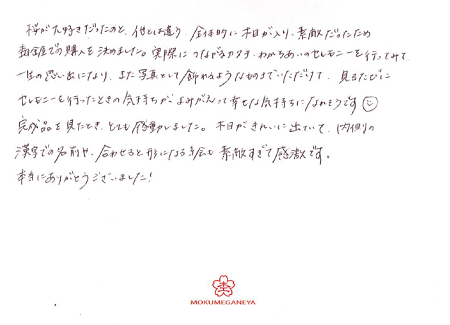 桜が大好きだったのと、他とは違い全体的に木目が入り、素敵だったため
杢目金屋での購入を決めました。実際につながるカタチ・わかちあいのセレモニーを行ってみて、
一生の思い出になり、また写真として飾れるようなものまでいただけて、見るたびに
セレモニーを行ったときの気持ちがよみがえって幸せな気持ちになれそうです
完成品を見たとき、とても感動しました。木目がきれいに出ていて、内側の
漢字での名前や、合わせると形になる絵も素敵すぎて感激です。
本当にありがとうございました！
MOKUMEGANEYA